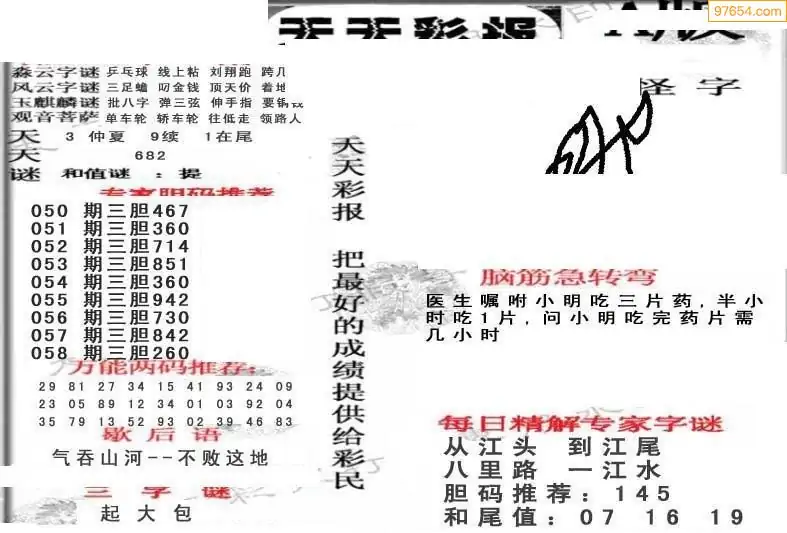 97654.com
天天彩报
A版
怪字
森云字谜 乒乓球 线上粘 刘翔跑 跨几
风云字谜 三足蟾 叨金钱 顶天价 着地
玉麒麟谜 批八字 弹三弦 伸手指 要锅
观音菩萨 单车轮 轿车轮 往低走 领路人
天 3 仲夏 9续 1在尾
天 682
谜 和值谜 : 提
专家胆码推荐
050 期三胆467
051 期三胆360
052 期三胆714
053 期三胆851
054 期三胆360
055 期三胆942
056 期三胆730
057 期三胆842
058 期三胆260
万能两码推荐:
29 81 27 34 15 41 93 24 09
23 05 89 12 34 01 03 92 04
35 79 13 52 93 02 39 46 83
歇后语
气吞山河--不败这地
三字谜
起大包
天天彩报 把最好的成绩提供给彩民
脑筋急转弯
医生嘱咐小明吃三片药,半小
时吃1片,问小明吃完药片需
几小时
每日精解专家字谜
从江头 到江尾
八里路 一江水
胆码推荐: 145
和尾值: 07 16 19